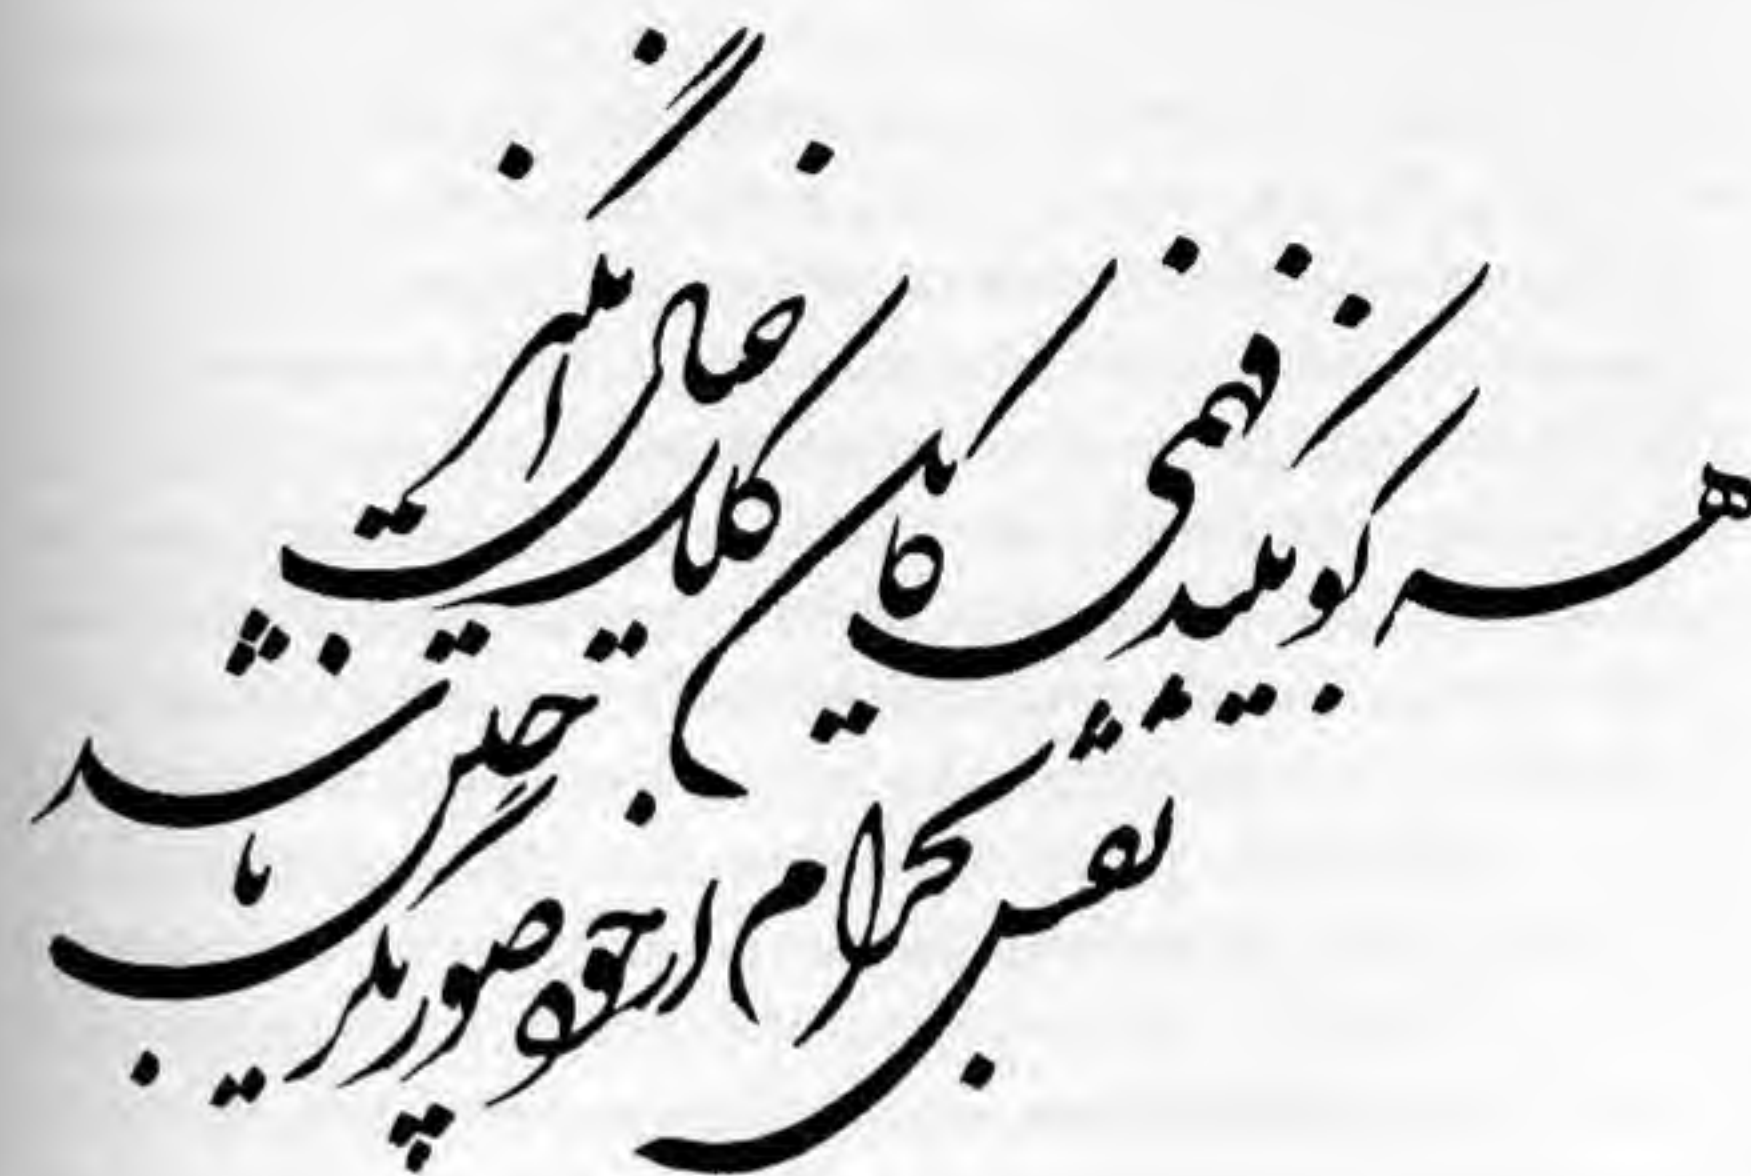 هر کو نکند فهمی زین کلک خیال انگیز
نقشش بحرام ار خود صورتگر چین باشد